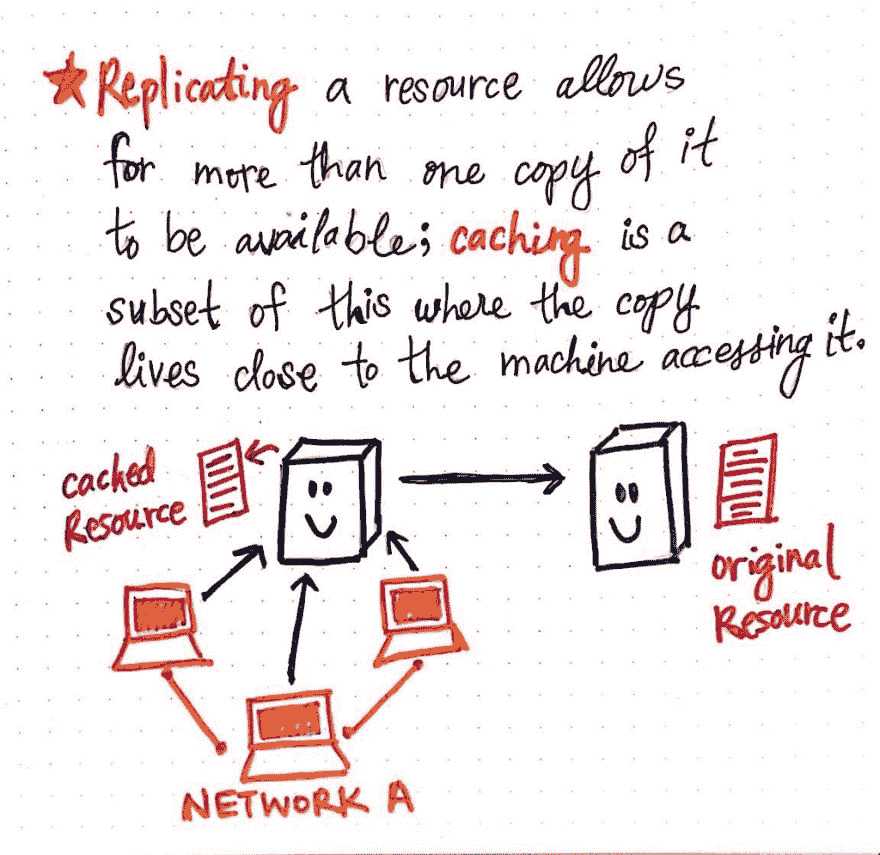 ★Replicating a resource allows
for more than one copy of it
to be available; caching is a
subset of this where the copy
lives close to the machine accessing it.
cached
Resource
original
Resource
NETWORK A